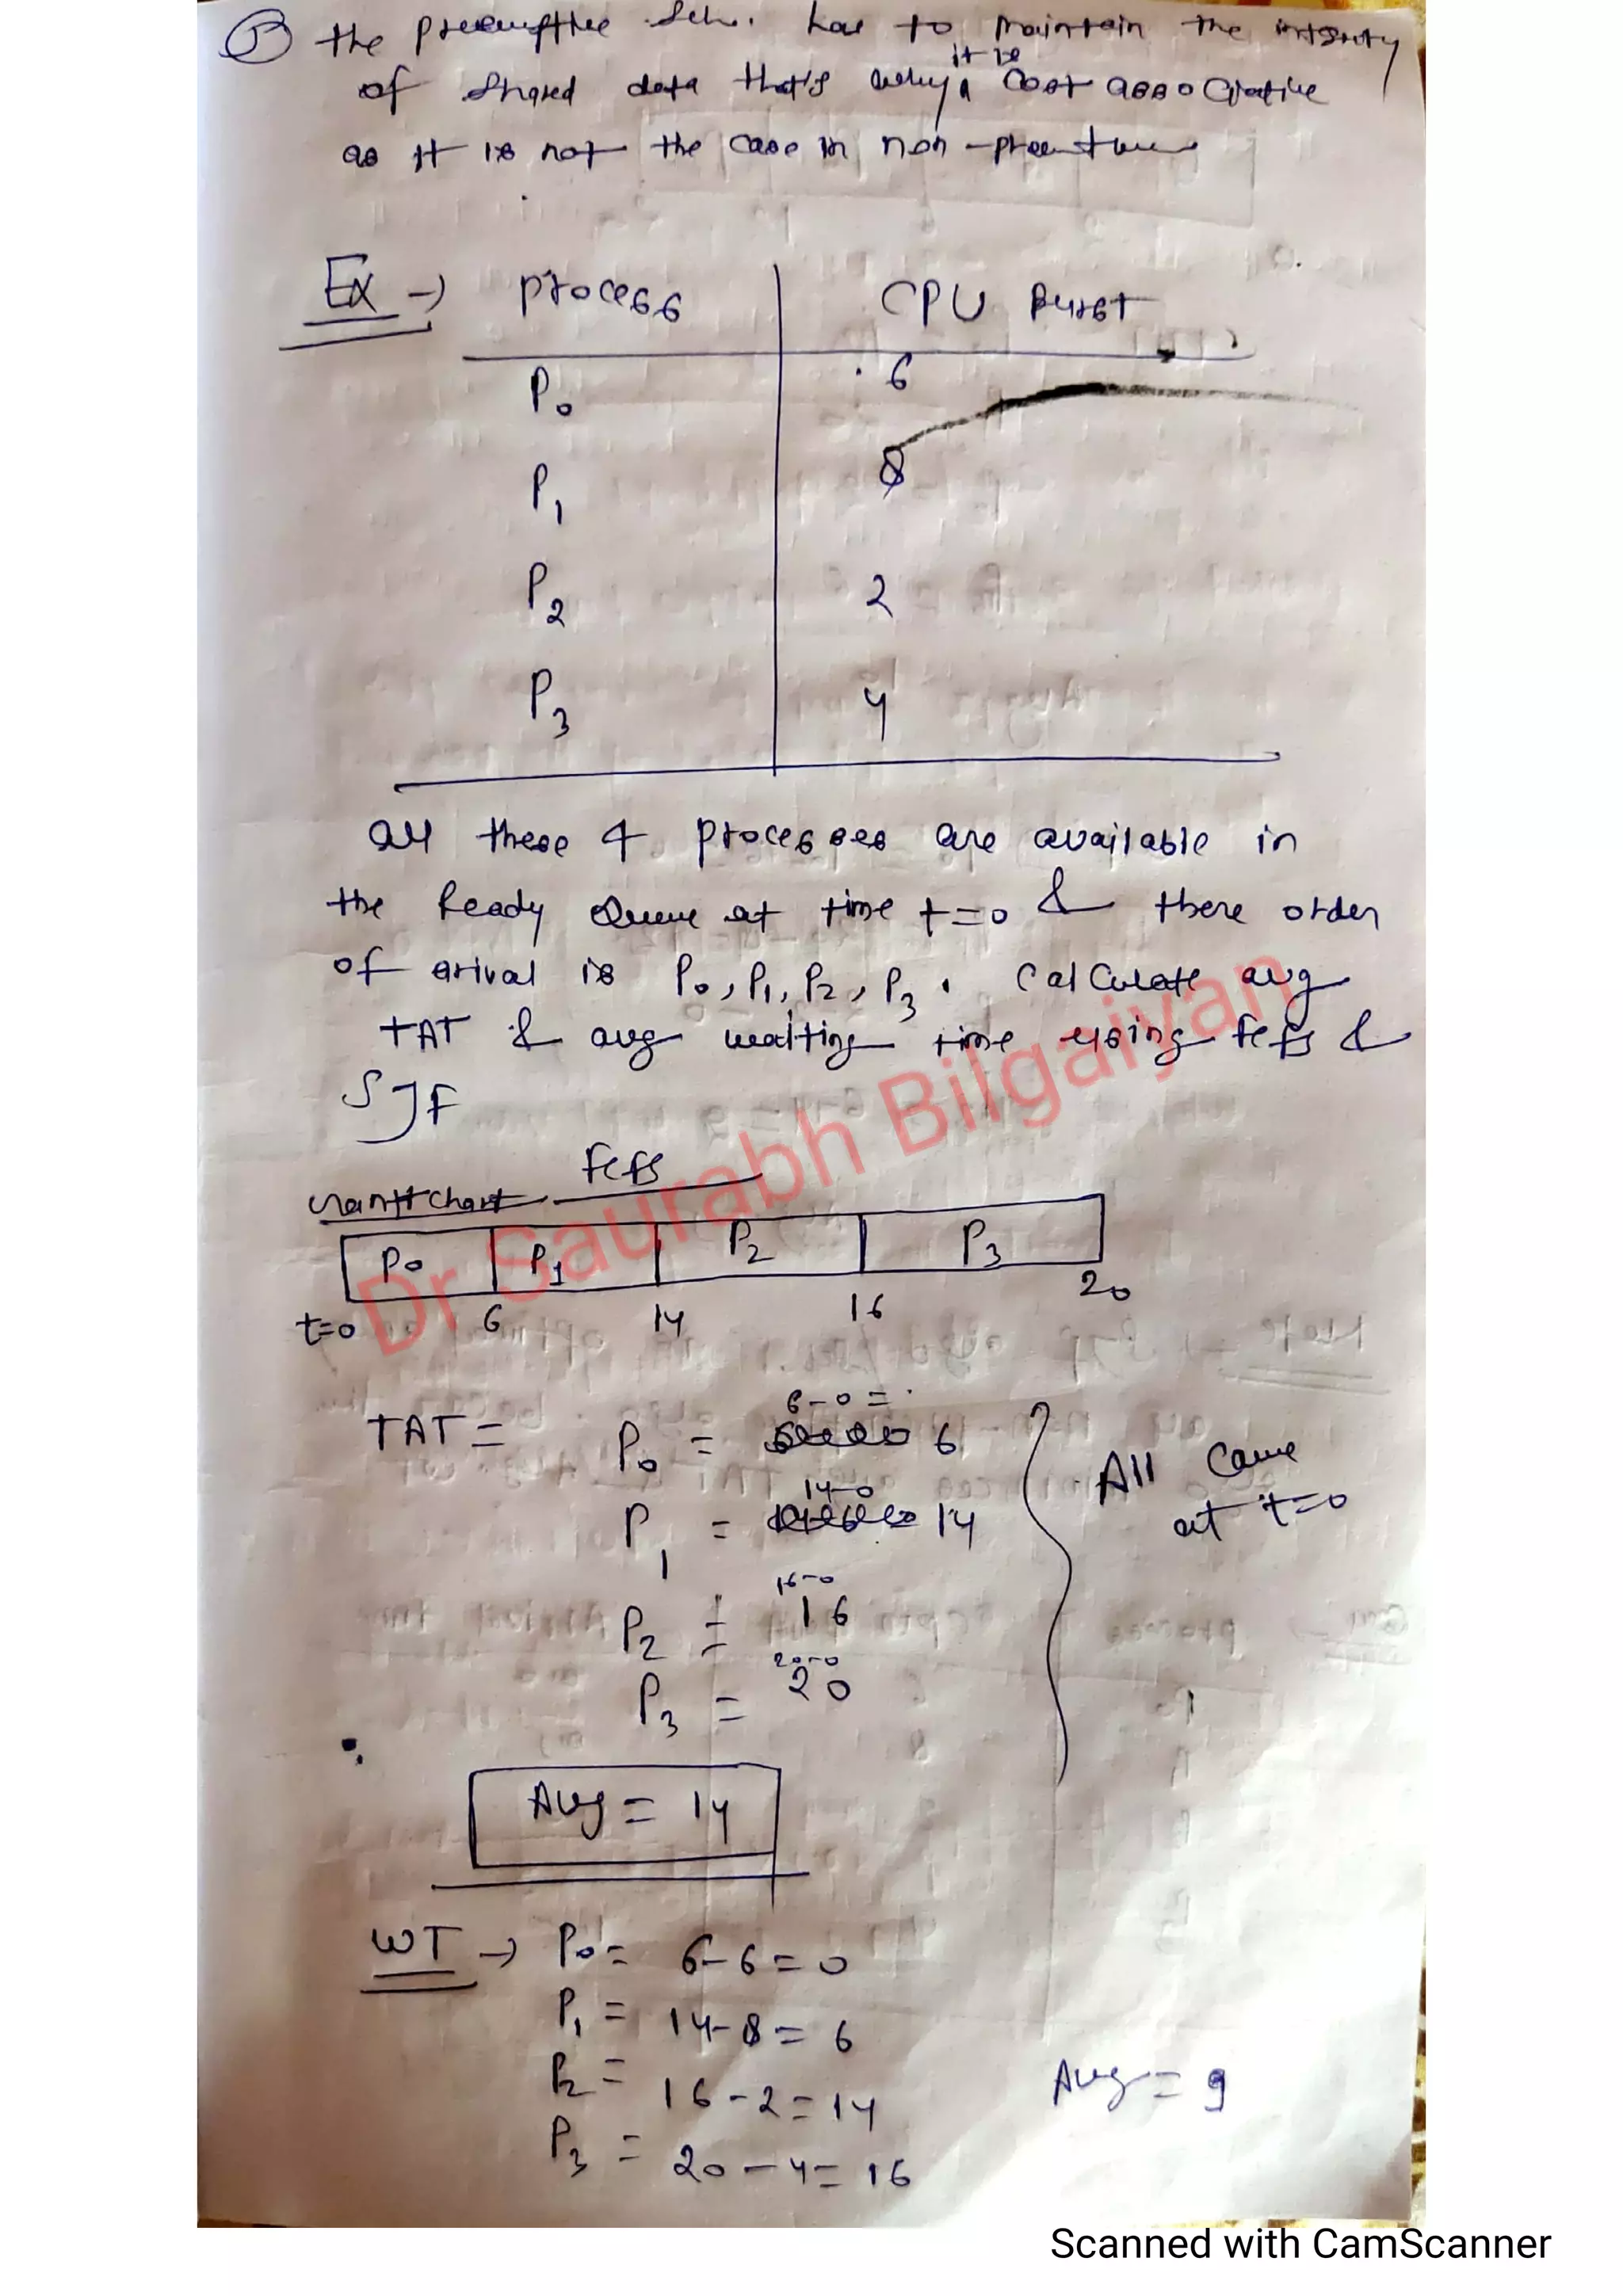 ③ the preemptive Sch. has to maintain the
of shared data that's why it is cost associative
as it is not the case in non-preemtive
Ex → process CPU Burst
P0 6
P1 8
P2 2
P3 4
all these 4 processes are available in
the Ready Queue at time t=0 & there order
of arival is P0, P1, P2, P3. Calculate avg
TAT & avg waiting time using fcfs &
SJF
Gantt chart fcfs
P0 P1 P2 P3
t=0 6 14 16 20
TAT = P0 = 6-0 = 6
P1 = 14-0 14
P2 = 16-0 16
P3 = 20-0 20
All came
at t=0
Avg = 14
WT → P0 = 6-6=0
P1 = 14-8=6
P2 = 16-2=14
P3 = 20-4=16
Avg = 9
Dr Saurabh Bilgaiyan
Scanned with CamScanner